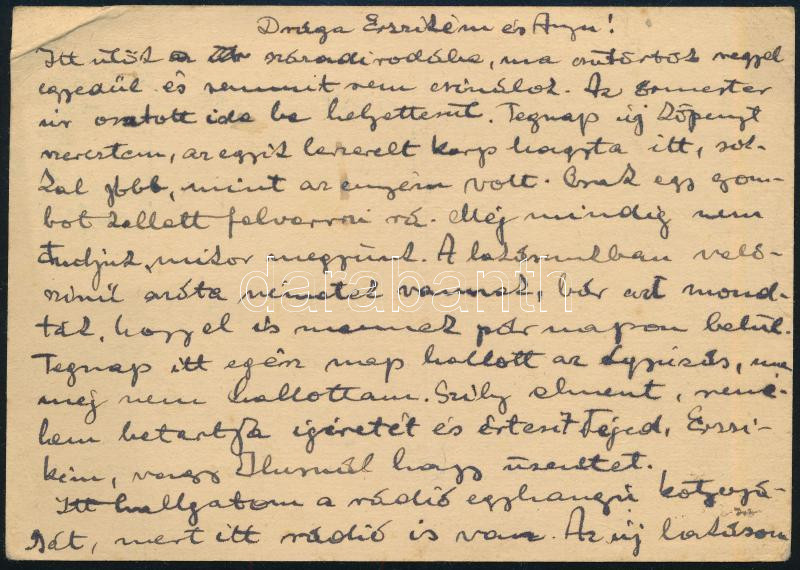 Drága Erzsikém és Anyu!
Itt ülök a századirodába, ma csütörtök reggel
egyedül és semmit nem csinálok. Az őrmester
úr osztott ide be helyettesül. Tegnap új köpenyt
szereztem, az egyik leszerelt karp. hagyta itt, sok-
kal jobb, mint az enyém volt. Csak egy gom-
bot kellett felvarrni rá. Még mindig nem
tudjuk, mikor megyünk. A laktanyában való-
színű azóta németek vannak, bár azt mond-
ták, hogy el is mennek pár napon belül.
Tegnap itt egész nap hallott az ágyúzás, ma
még nem hallottam. Szily elment, remé-
lem betartja igéretét és értesít Téged, Erzsi-
kém, vagy Ilusnál hagy üzenetet.
Itt hallgatom a rádió egyhangú kotyogá-
sát, mert itt rádió is van. Az új lakásom
darabanth